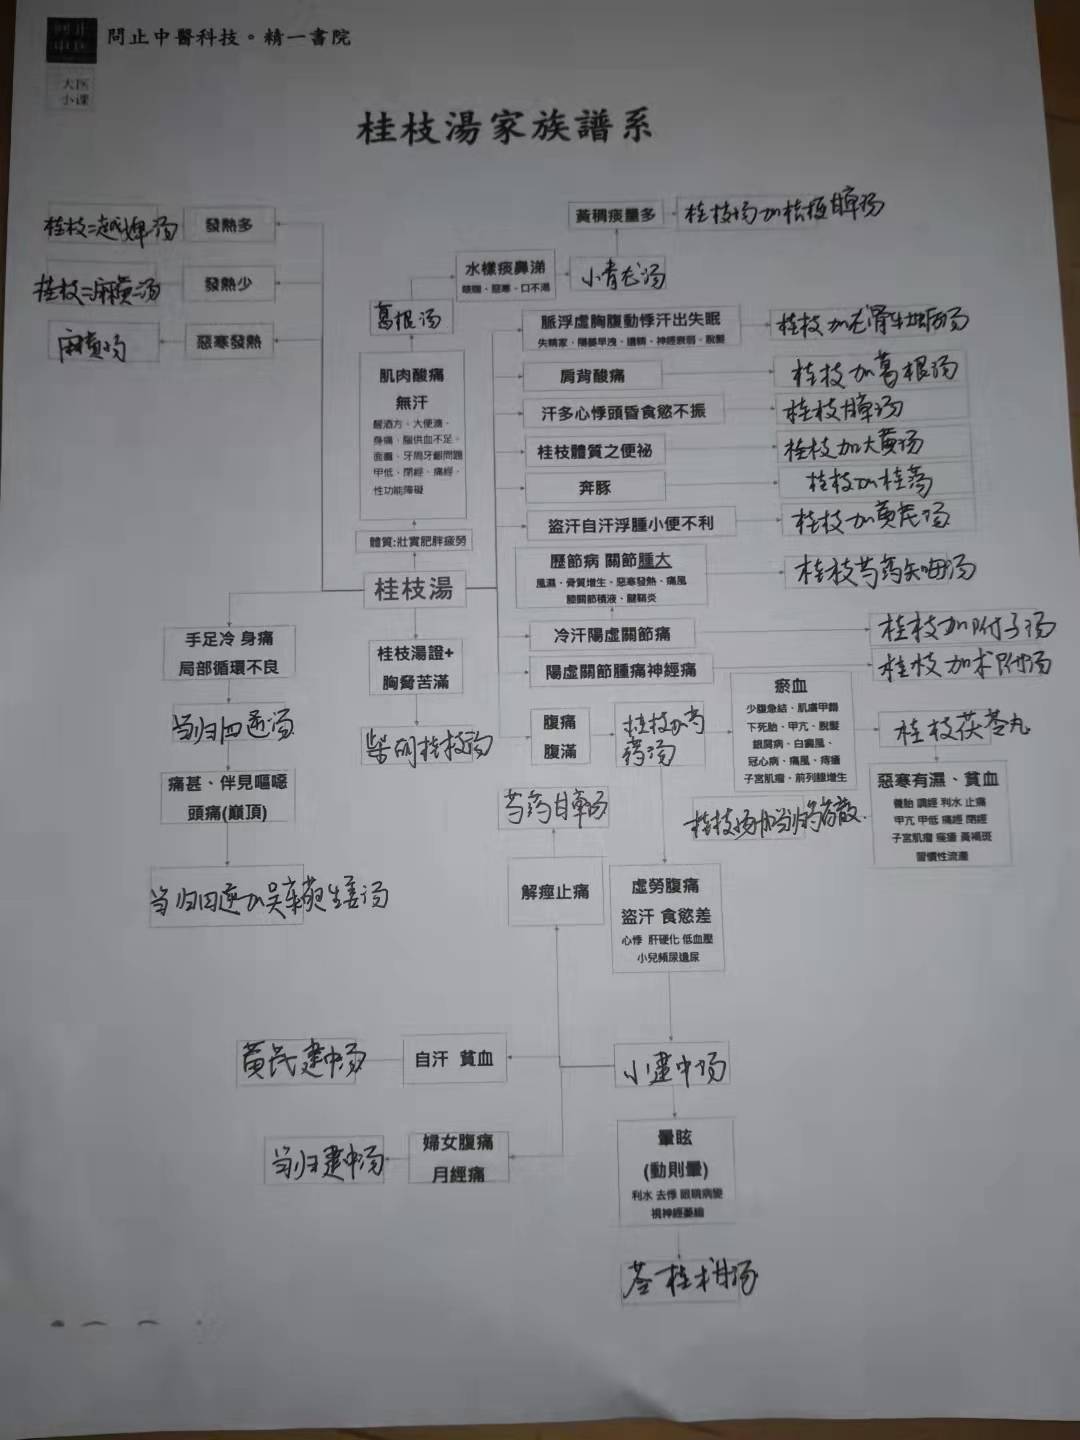 問止中醫科技。精一書院
問止
中医
大医
小课
桂枝湯家族譜系
桂枝二越婢汤
發熱多
桂枝二麻黄一汤
發熱少
麻黄汤
惡寒發熱
黃稠痰量多
水樣痰鼻涕
咳喘、惡寒、口不渴
小青龙汤
葛根汤
肌肉酸痛
無汗
醒酒方、大便溏、
身痛、腦供血不足、
面癱、牙周牙齦問題
甲低、閉經、痛經、
性功能障礙
體質:壯實肥胖疲勞
桂枝湯
脈浮虛胸腹動悸汗出失眠
失精家、陽萎早洩、遺精、神經衰弱、脫髮
桂枝加龙骨牡蛎汤
肩背酸痛
桂枝加葛根汤
汗多心悸頭昏食慾不振
桂枝
桂枝體質之便祕
桂枝加大黄汤
奔豚
桂枝加桂汤
盜汗自汗浮腫小便不利
桂枝加黄芪汤
歷節病 關節腫大
風濕、骨質增生、惡寒發熱、痛風
膝關節積液、腱鞘炎
桂枝芍药知母汤
冷汗陽虛關節痛
桂枝加附子汤
陽虛關節腫痛神經痛
桂枝加术附汤
手足冷 身痛
局部循環不良
当归四逆汤
痛甚、伴見嘔噁
頭痛(巔頂)
当归四逆加吴茱萸生姜汤
桂枝湯證+
胸脅苦滿
柴胡桂枝汤
腹痛
腹滿
桂枝加芍
药汤
瘀血
少腹急結、肌膚甲錯
下死胎、甲亢、脫髮
銀屑病、白癜風、
冠心病、痛風、痔瘡
子宮肌瘤、前列腺增生
桂枝茯苓丸
惡寒有濕、貧血
養胎 調經 利水 止痛
甲亢 甲低 痛經 閉經
子宮肌瘤 痤瘡 黃褐斑
習慣性流產
芍药甘草汤
解痙止痛
虛勞腹痛
盜汗 食慾差
心悸 肝硬化 低血壓
小兒頻尿遺尿
小建中汤
自汗 貧血
黄芪建中汤
婦女腹痛
月經痛
当归建中汤
暈眩
(動則暈)
利水 去悸 眼睛病變
視神經萎縮
苓桂术甘汤